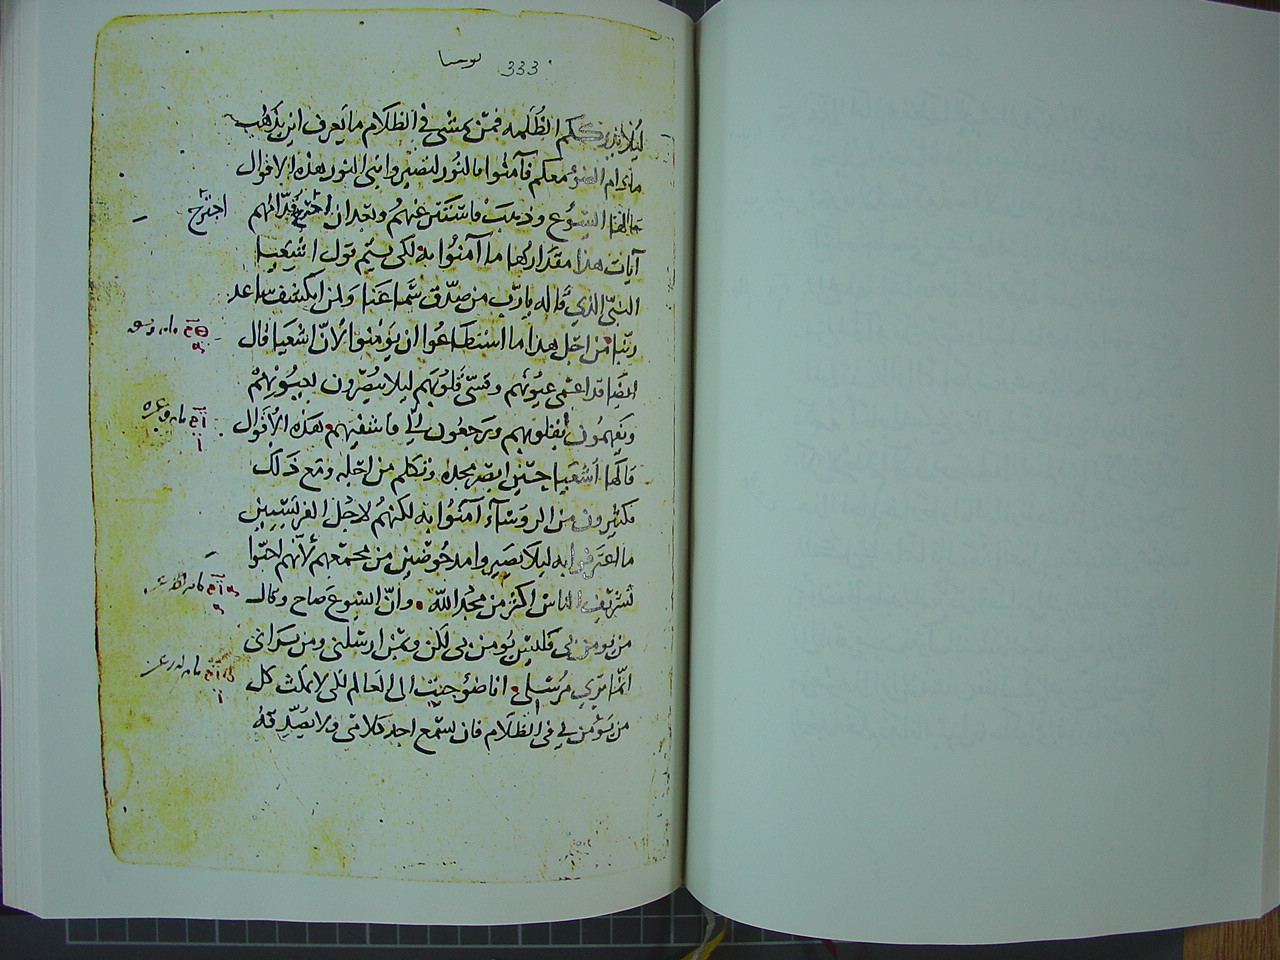 يوحنا 333
ليُلا يدرككم الظُلمه فمن يمشي في الظلام ما يعرف اين يذهب
ما دام الضوُ معكم فآمنوا بالنُور لتصيروا بني النور هذه الاقوال
قالها اليسُوع وذهبَ فاستَتَر عنهُم وبَعد ان اجترح قدّامُهم
اجترح
آيات هذا مقدَارُها ما آمنُوا به لكي يتم قول اشعيا
النبّي الذي قاله يا ربّ من صدّق سماعنا ولمن انكشف ساعد
ربّنا من اجل هذا ما استطاعُوا ان يؤمنوا لأنّ اشعيا قال
ايضًا قد اعمى عيُونُهم وقسّى قلُوبَهم ليلا يبُصرون بعيُونِهمُ
ويَفهمُون بقلوبهم ويرجعُون اليّ فاشفيهم هذه الأقوال
قالها أشعيا حين ابصر مجده وتكلم من اجله ومع ذَلك
فكثيرون من الروسَآء آمنُوا به لكنهُم لاجُل الفريسّيين
ما اعترفوا به ليلا يصيروا مدحُوضين من مجمَعهم لأنهم احبّوا
تشريف الناس اكثر من مجد الله وأنّ اليسُوعَ صاح وقال
من يومن بي فليسَ يُومن بي لكن وبمَن ارسَلني ومن يرَاني
انّما يَرَي مُرسَلي انا ضوُ جيت الى العالم لكي لا يلبث كل
من يؤمن بي في الظلَام فان سَمع احد كلامي ولا يصدّقهُ